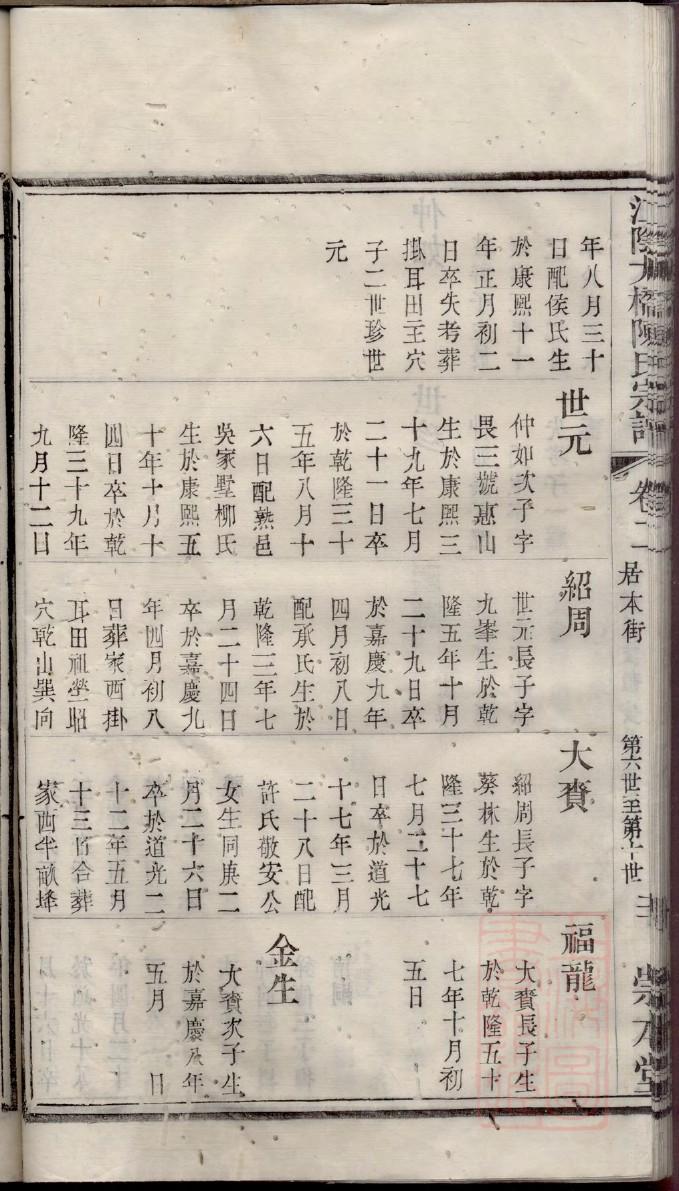 年八月三十
日配侯氏生
於康熙十一
年正月初二
日卒失考葬
掛耳田主穴
子二世珍世
元
世元
仲如次子字
畏三號惠山
生於康熙三
十九年七月
二十一日卒
於乾隆三十
五年八月十
六日配熟邑
吳家墅柳氏
生於康熙五
十年十月十
四日卒於乾
隆三十九年
九月十二日
紹周
世元長子字
九峯生於乾
隆五年十月
二十九日卒
於嘉慶九年
四月初八日
配承氏生於
乾隆三年七
月二十四日
卒於嘉慶九
年四月初八
日葬家西掛
耳田祖塋昭
穴乾山巽向
大賚
紹周長子字
葵林生於乾
隆三十七年
七月二十七
日卒於道光
十七年三月
二十八日配
許氏敬安公
女生同庚二
月二十六日
卒於道光二
十二年五月
十三日合葬
家酉半畝埄
福龍
大賚長子生
於乾隆五十
七年十月初
五日
金生
大賚次子生
於嘉慶 年
五月 日
江陰大橋陳氏宗譜
卷二
居本街
第六世至第十世
崇本堂